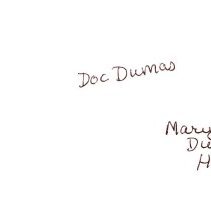 Doc Dumas
Mary
Du
H